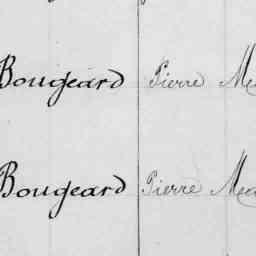 Bougeard Pierre Me
Bougeard Pierre Mea